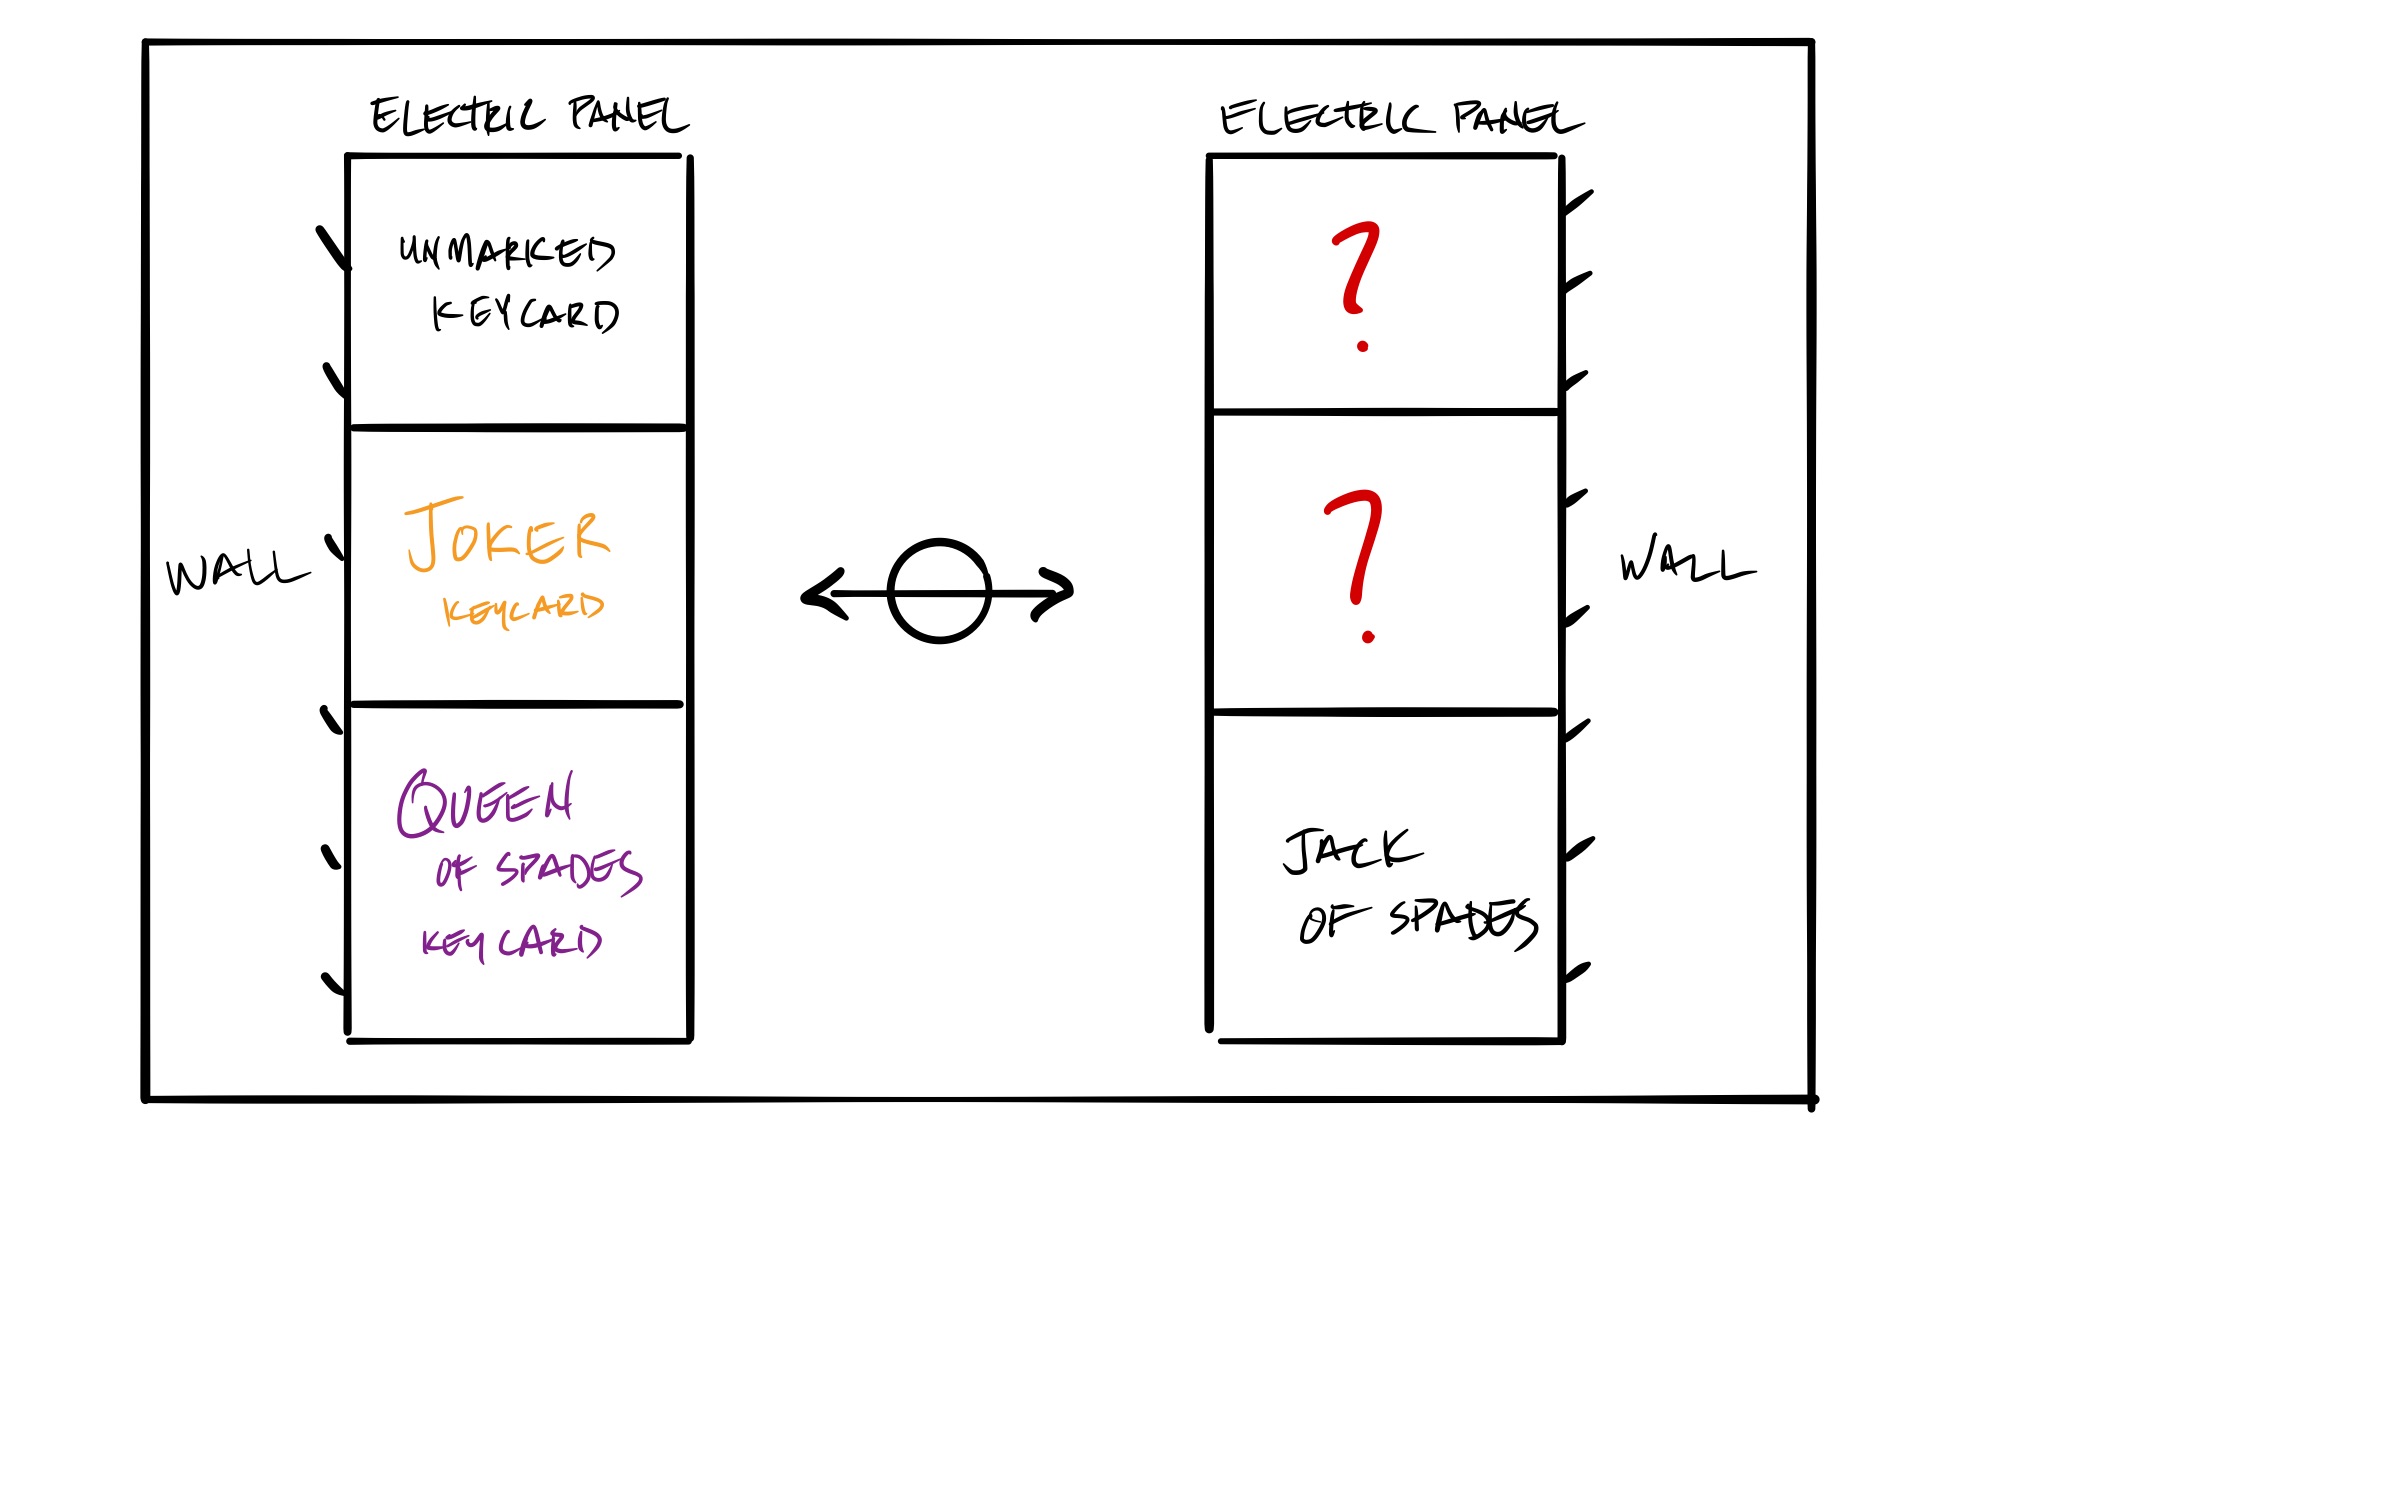 ELECTRIC PANEL
UNMARKED
KEYCARD
JOKER
KEYCARD
QUEEN
OF SPADES
KEYCARD
WALL
ELECTRIC PANEL
?
?
JACK
OF SPADES
WALL